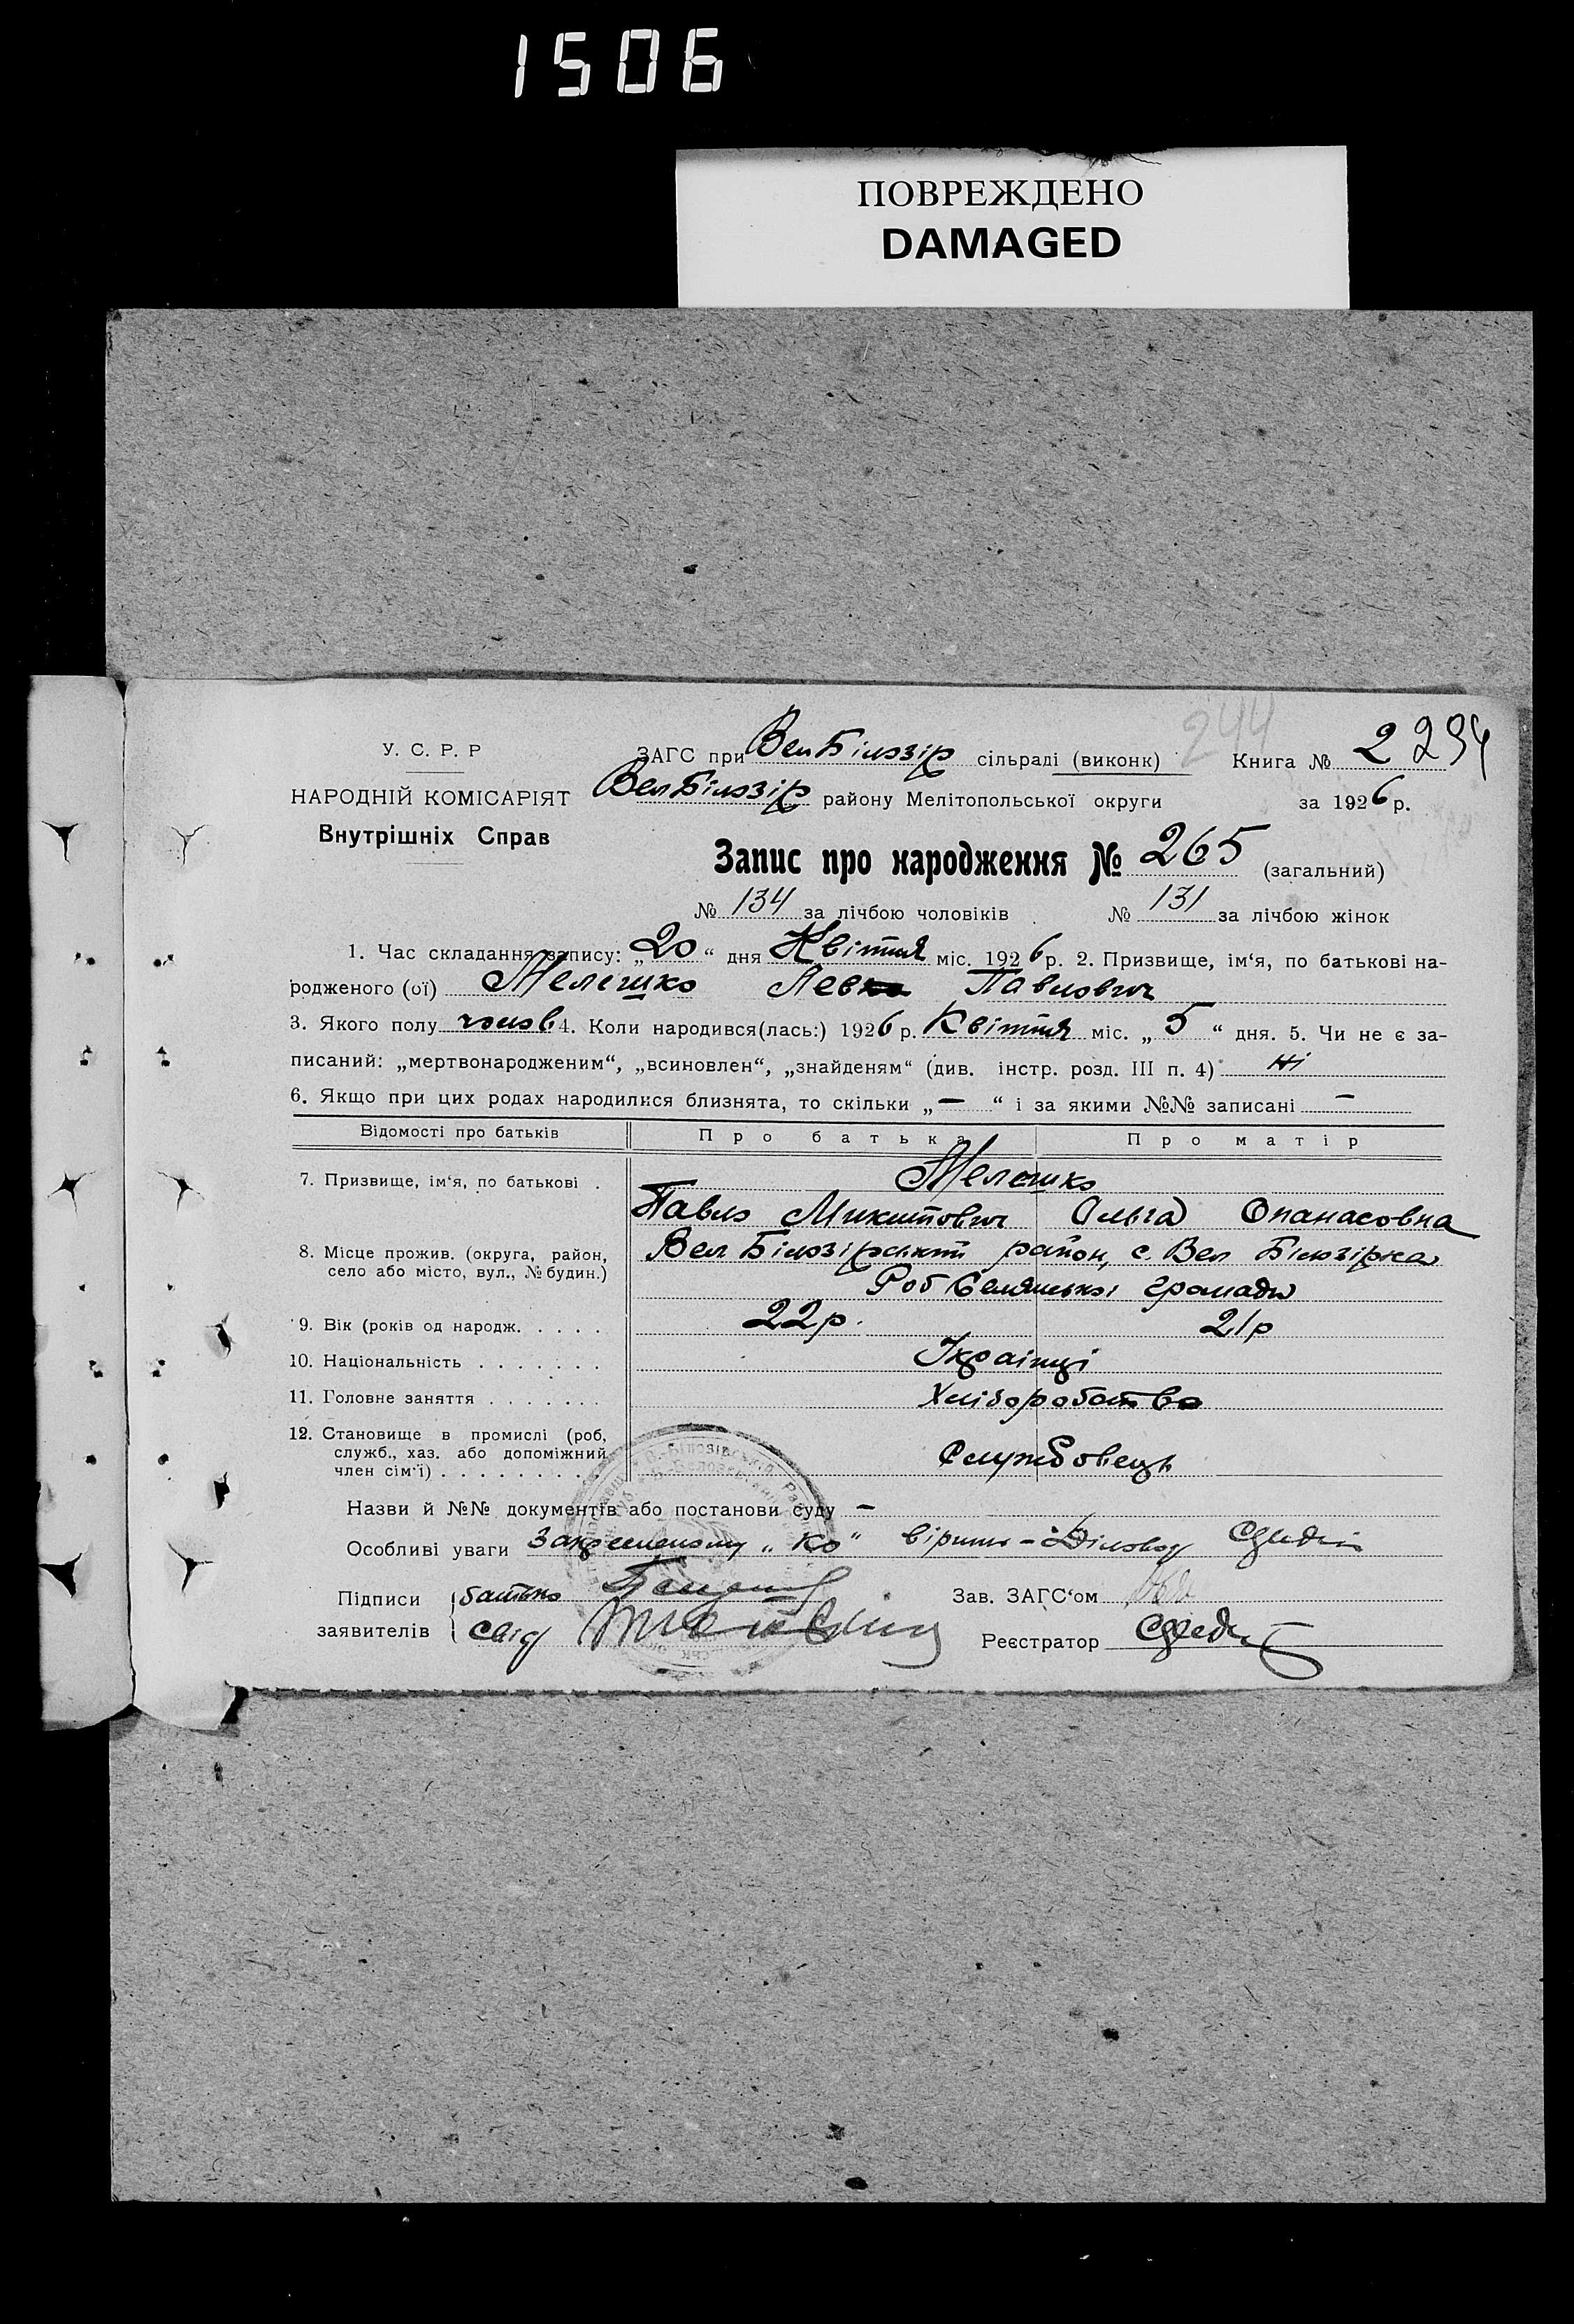 1506
ПОВРЕЖДЕНО
DAMAGED
244
У. С. Р. Р
ЗАГС при Вел Білозір сільраді (виконк) Книга № 2 294
НАРОДНІЙ КОМІСАРІЯТ Вел Білозір району Мелітопольської округи за 1926 р.
Внутрішніх Справ
Запис про народження № 265 (загальний)
№ 134 за лічбою чоловіків № 131 за лічбою жінок
1. Час складання запису: „20“ дня Квітня міс. 1926 р. 2. Призвище, ім‘я, по батькові на-
родженого (ої) Мелешко Левко Павлович
3. Якого полу чолов 4. Коли народився(лась:) 1926 р. Квітня міс. „5“ дня. 5. Чи не є за-
писаний: „мертвонародженим“, „всиновлен“, „знайденям“ (див. інстр. розд. III п. 4) ні
6. Якщо при цих родах народилися близнята, то скільки „—“ і за якими №№ записані —
Відомості про батьків Про батька Про матір
7. Призвище, ім‘я, по батькові . Мелешко
Павло Микитович Ольга Опанасовна
8. Місце прожив. (округа, район, Вел Білозірський район, с. Вел Білозірка
село або місто, вул., № будин.)
Роб Селянської громади
9. Вік (років од народж. . . . . 22р. 21р
10. Національність . . . . . . . Українці
11. Головне заняття . . . . . . . Хліборобство
12. Становище в промислі (роб,
служб., хаз. або допоміжний Службовець
член сім‘ї) . . . . . . . . .
Назви й №№ документів або постанови суду —
Особливі уваги Закресленому „ко“ вірить - Діловод
Підписи батько Зав. ЗАГС‘ом
заявителів свід Реєстратор